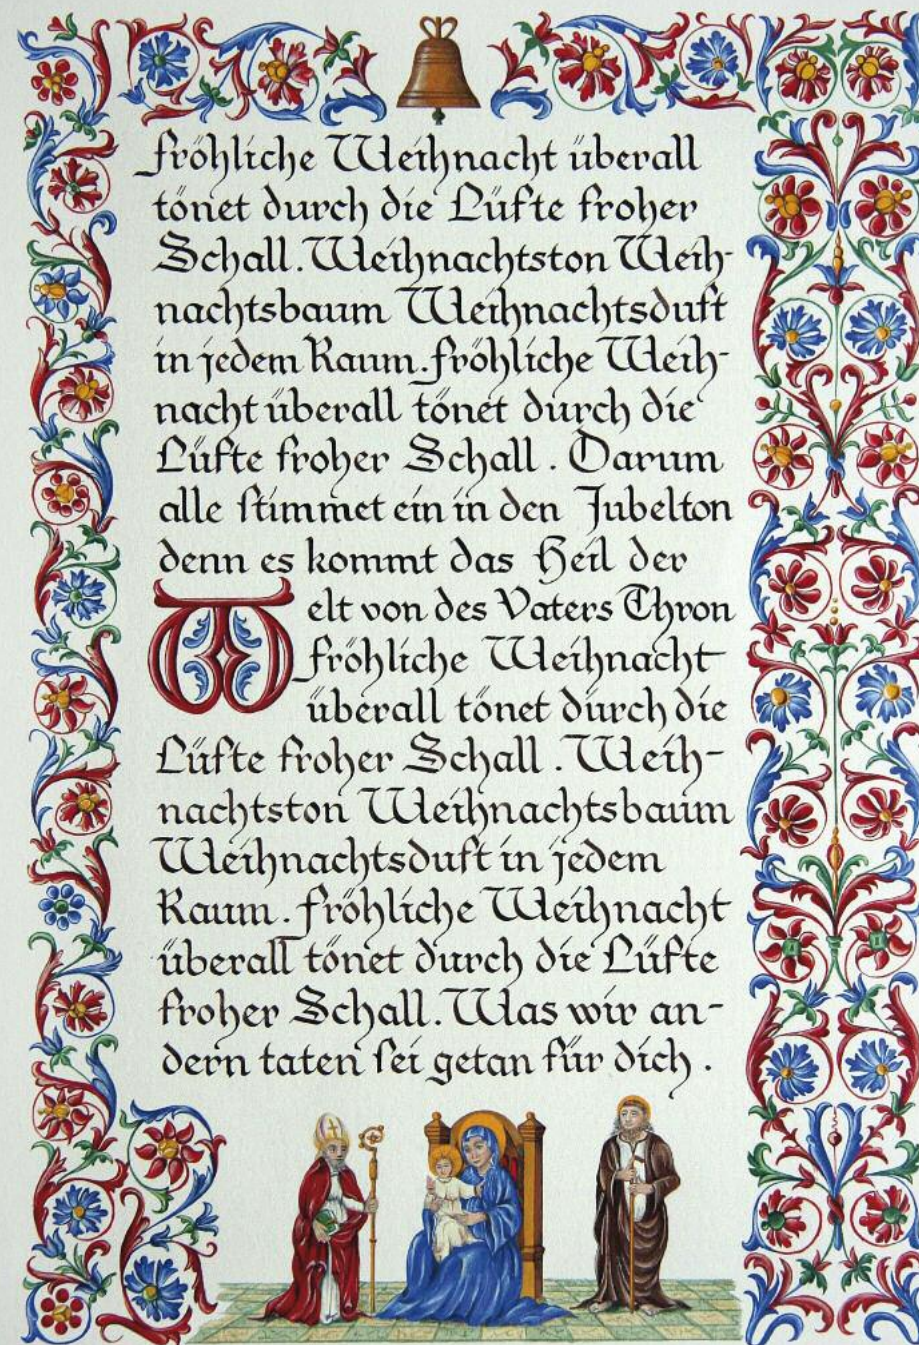 fröhliche Weihnacht überall
tönet durch die Lüfte froher
Schall. Weihnachtston Weih-
nachtsbaum Weihnachtsduft
in jedem Raum. fröhliche Weih-
nacht überall tönet durch die
Lüfte froher Schall. Darum
alle ſtimmet ein in den Jubelton
denn es kommt das Heil der
Welt von des Vaters Thron
fröhliche Weihnacht
überall tönet durch die
Lüfte froher Schall. Weih-
nachtston Weihnachtsbaum
Weihnachtsduft in jedem
Raum. fröhliche Weihnacht
überall tönet durch die Lüfte
froher Schall. Was wir an-
dern taten ſei getan für dich.